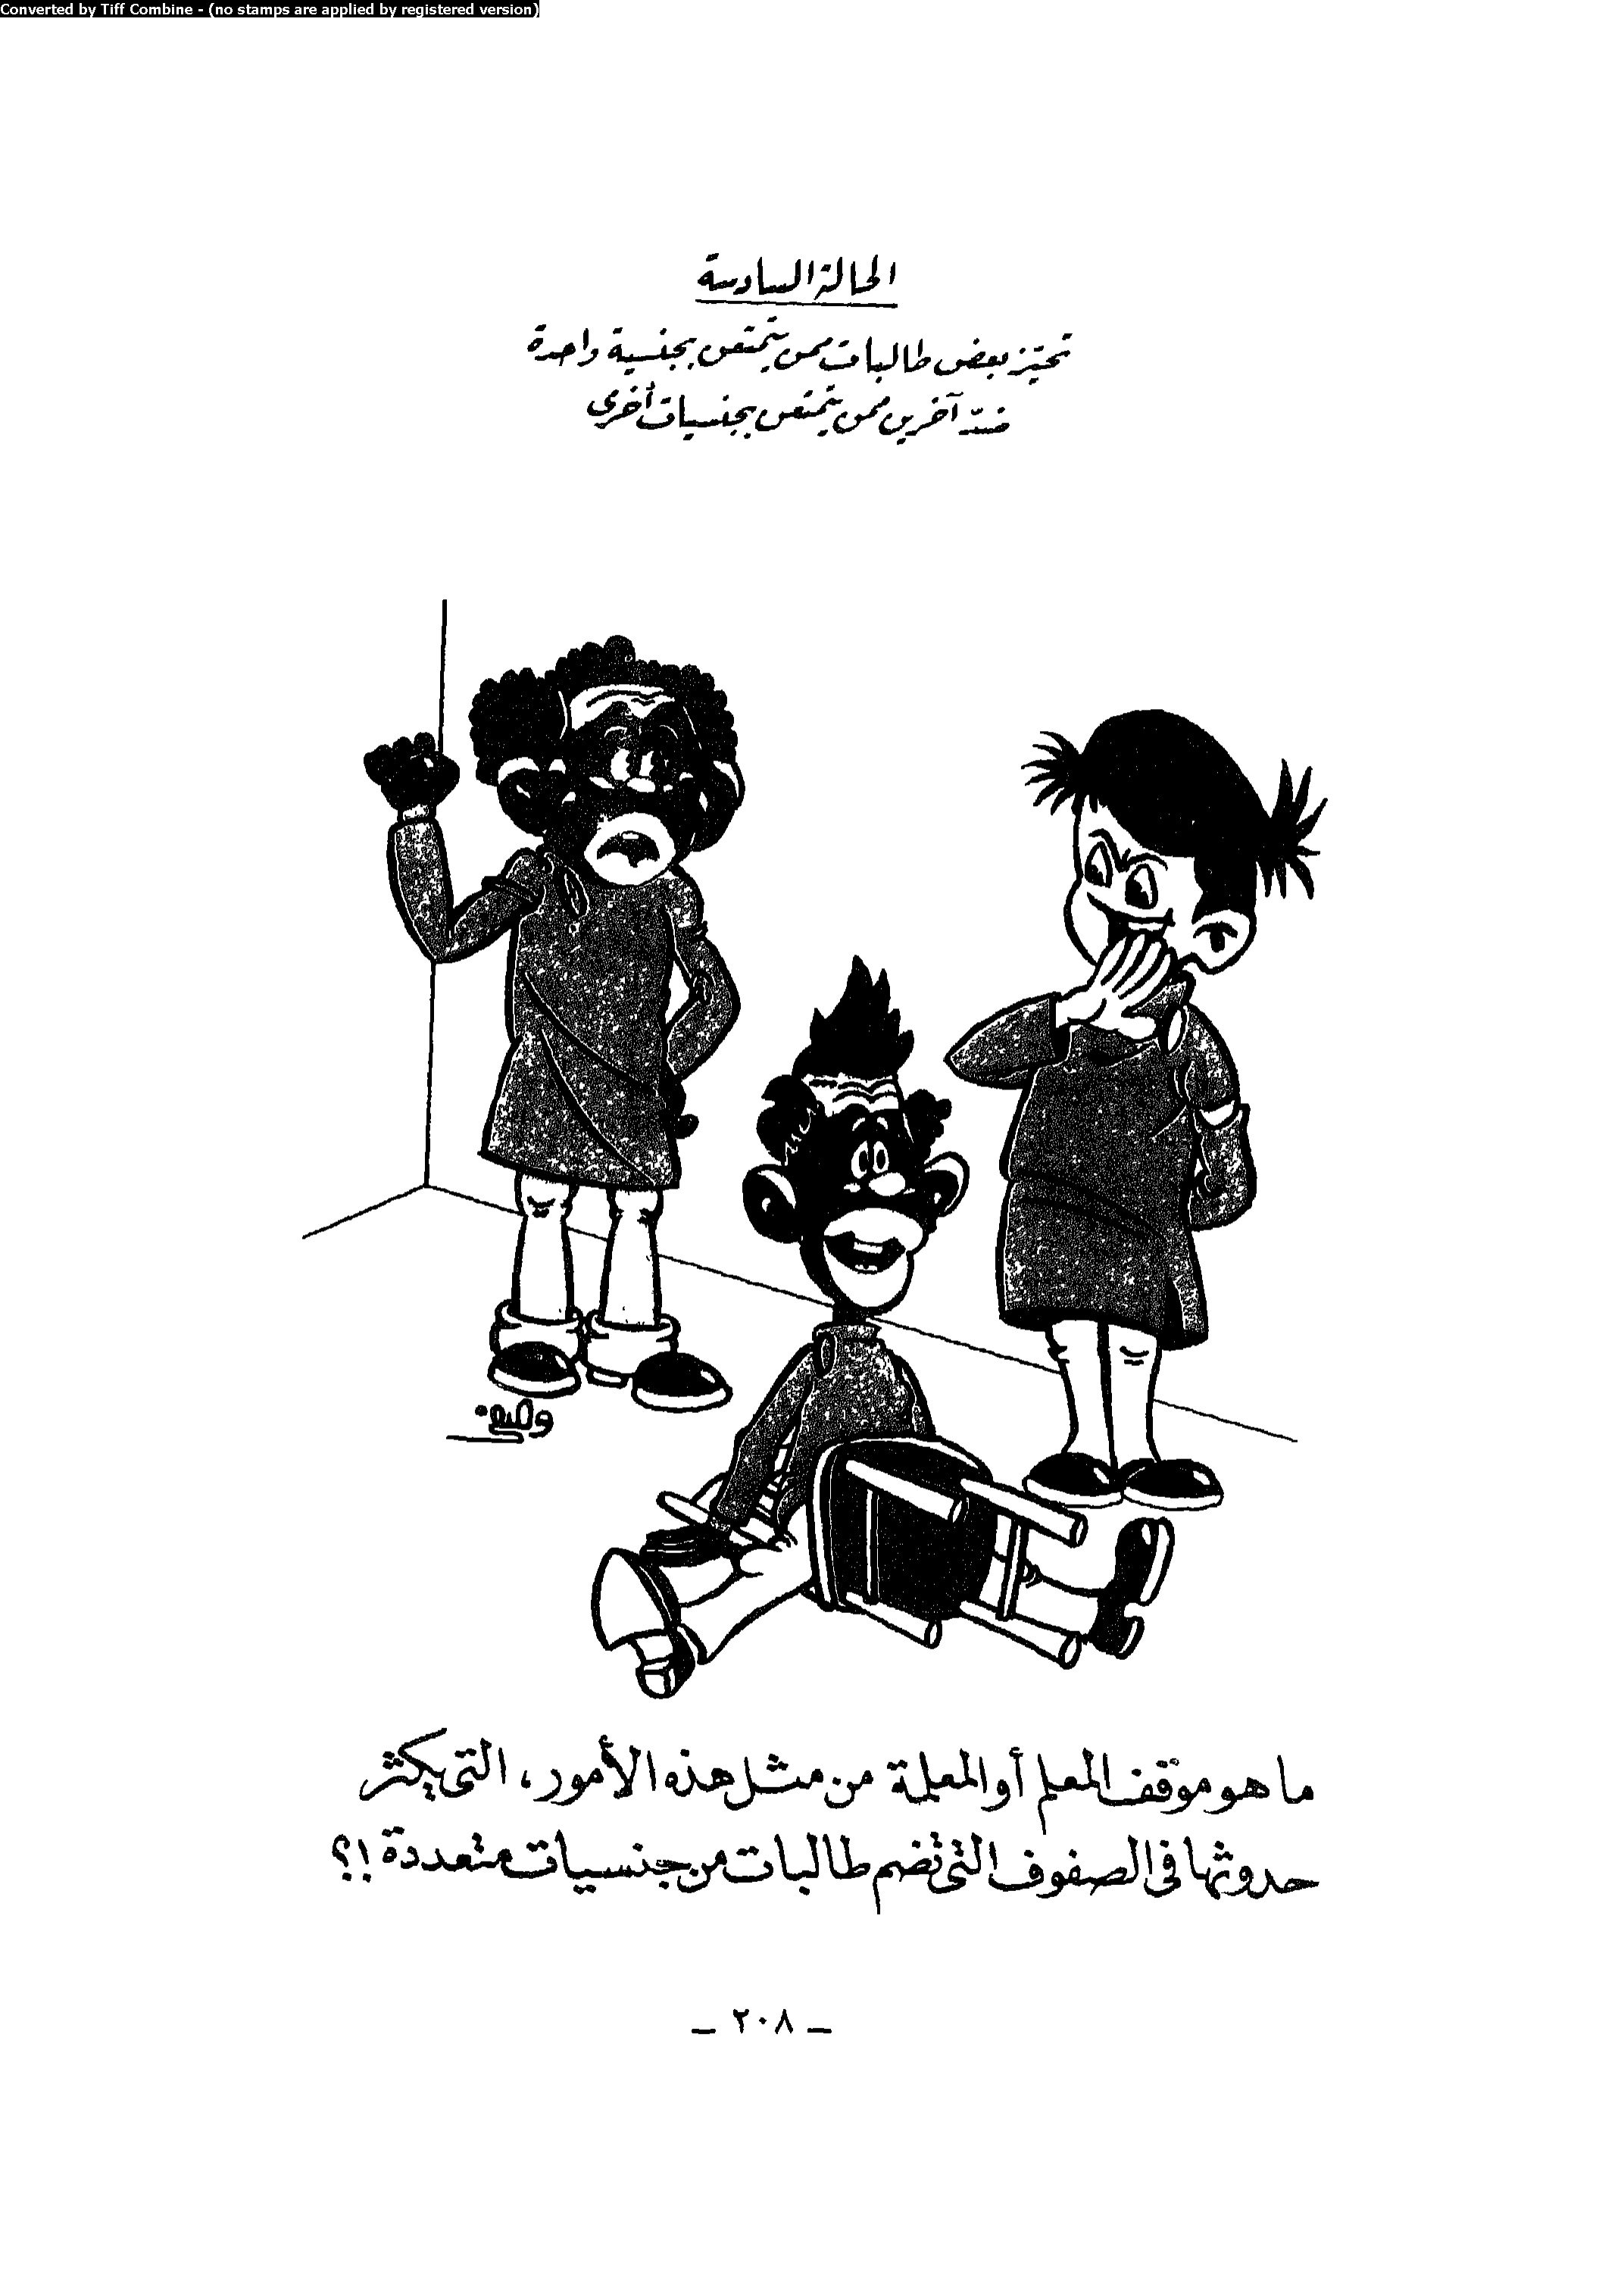 Converted by Tiff Combine - (no stamps are applied by registered version)
الحالة السادسة
تحيّز بعض طالبات ممن يتمتعن بجنسية واحدة
ضدّ آخرين ممن يتمتعن بجنسيات أخرى
وصيف
ما هو موقف المعلم أو المعلمة من مثل هذه الأمور، التي يكثر
حدوثها في الصفوف التي تضم طالبات من جنسيات متعددة !؟
– ٢٠٨ –